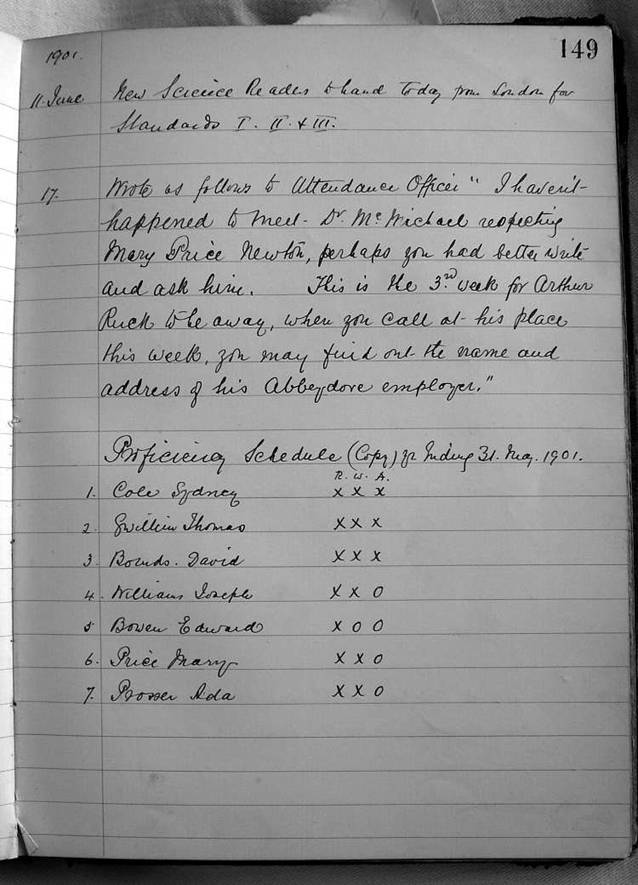 149
1901.
11. June New Science Readers to hand today from London for
Standards I. II. & III.
17. Wrote as follows to Attendance Officer "I haven't
happened to meet Dr. McMichael respecting
Mary Price Newton, perhaps you had better write
and ask him. This is the 3rd week for Arthur
Ruck to be away, when you call at his place
this week, you may find out the name and
address of his Abbeydore employer."
Proficiency Schedule (Copy) yr Ending 31. May. 1901.
R. W. A.
1. Cole Sydney x x x
2. Gwillim Thomas x x x
3. Bounds. David x x x
4. Williams Joseph x x 0
5. Bowen Edward x 0 0
6. Price Mary x x 0
7. Prosser Ada x x 0